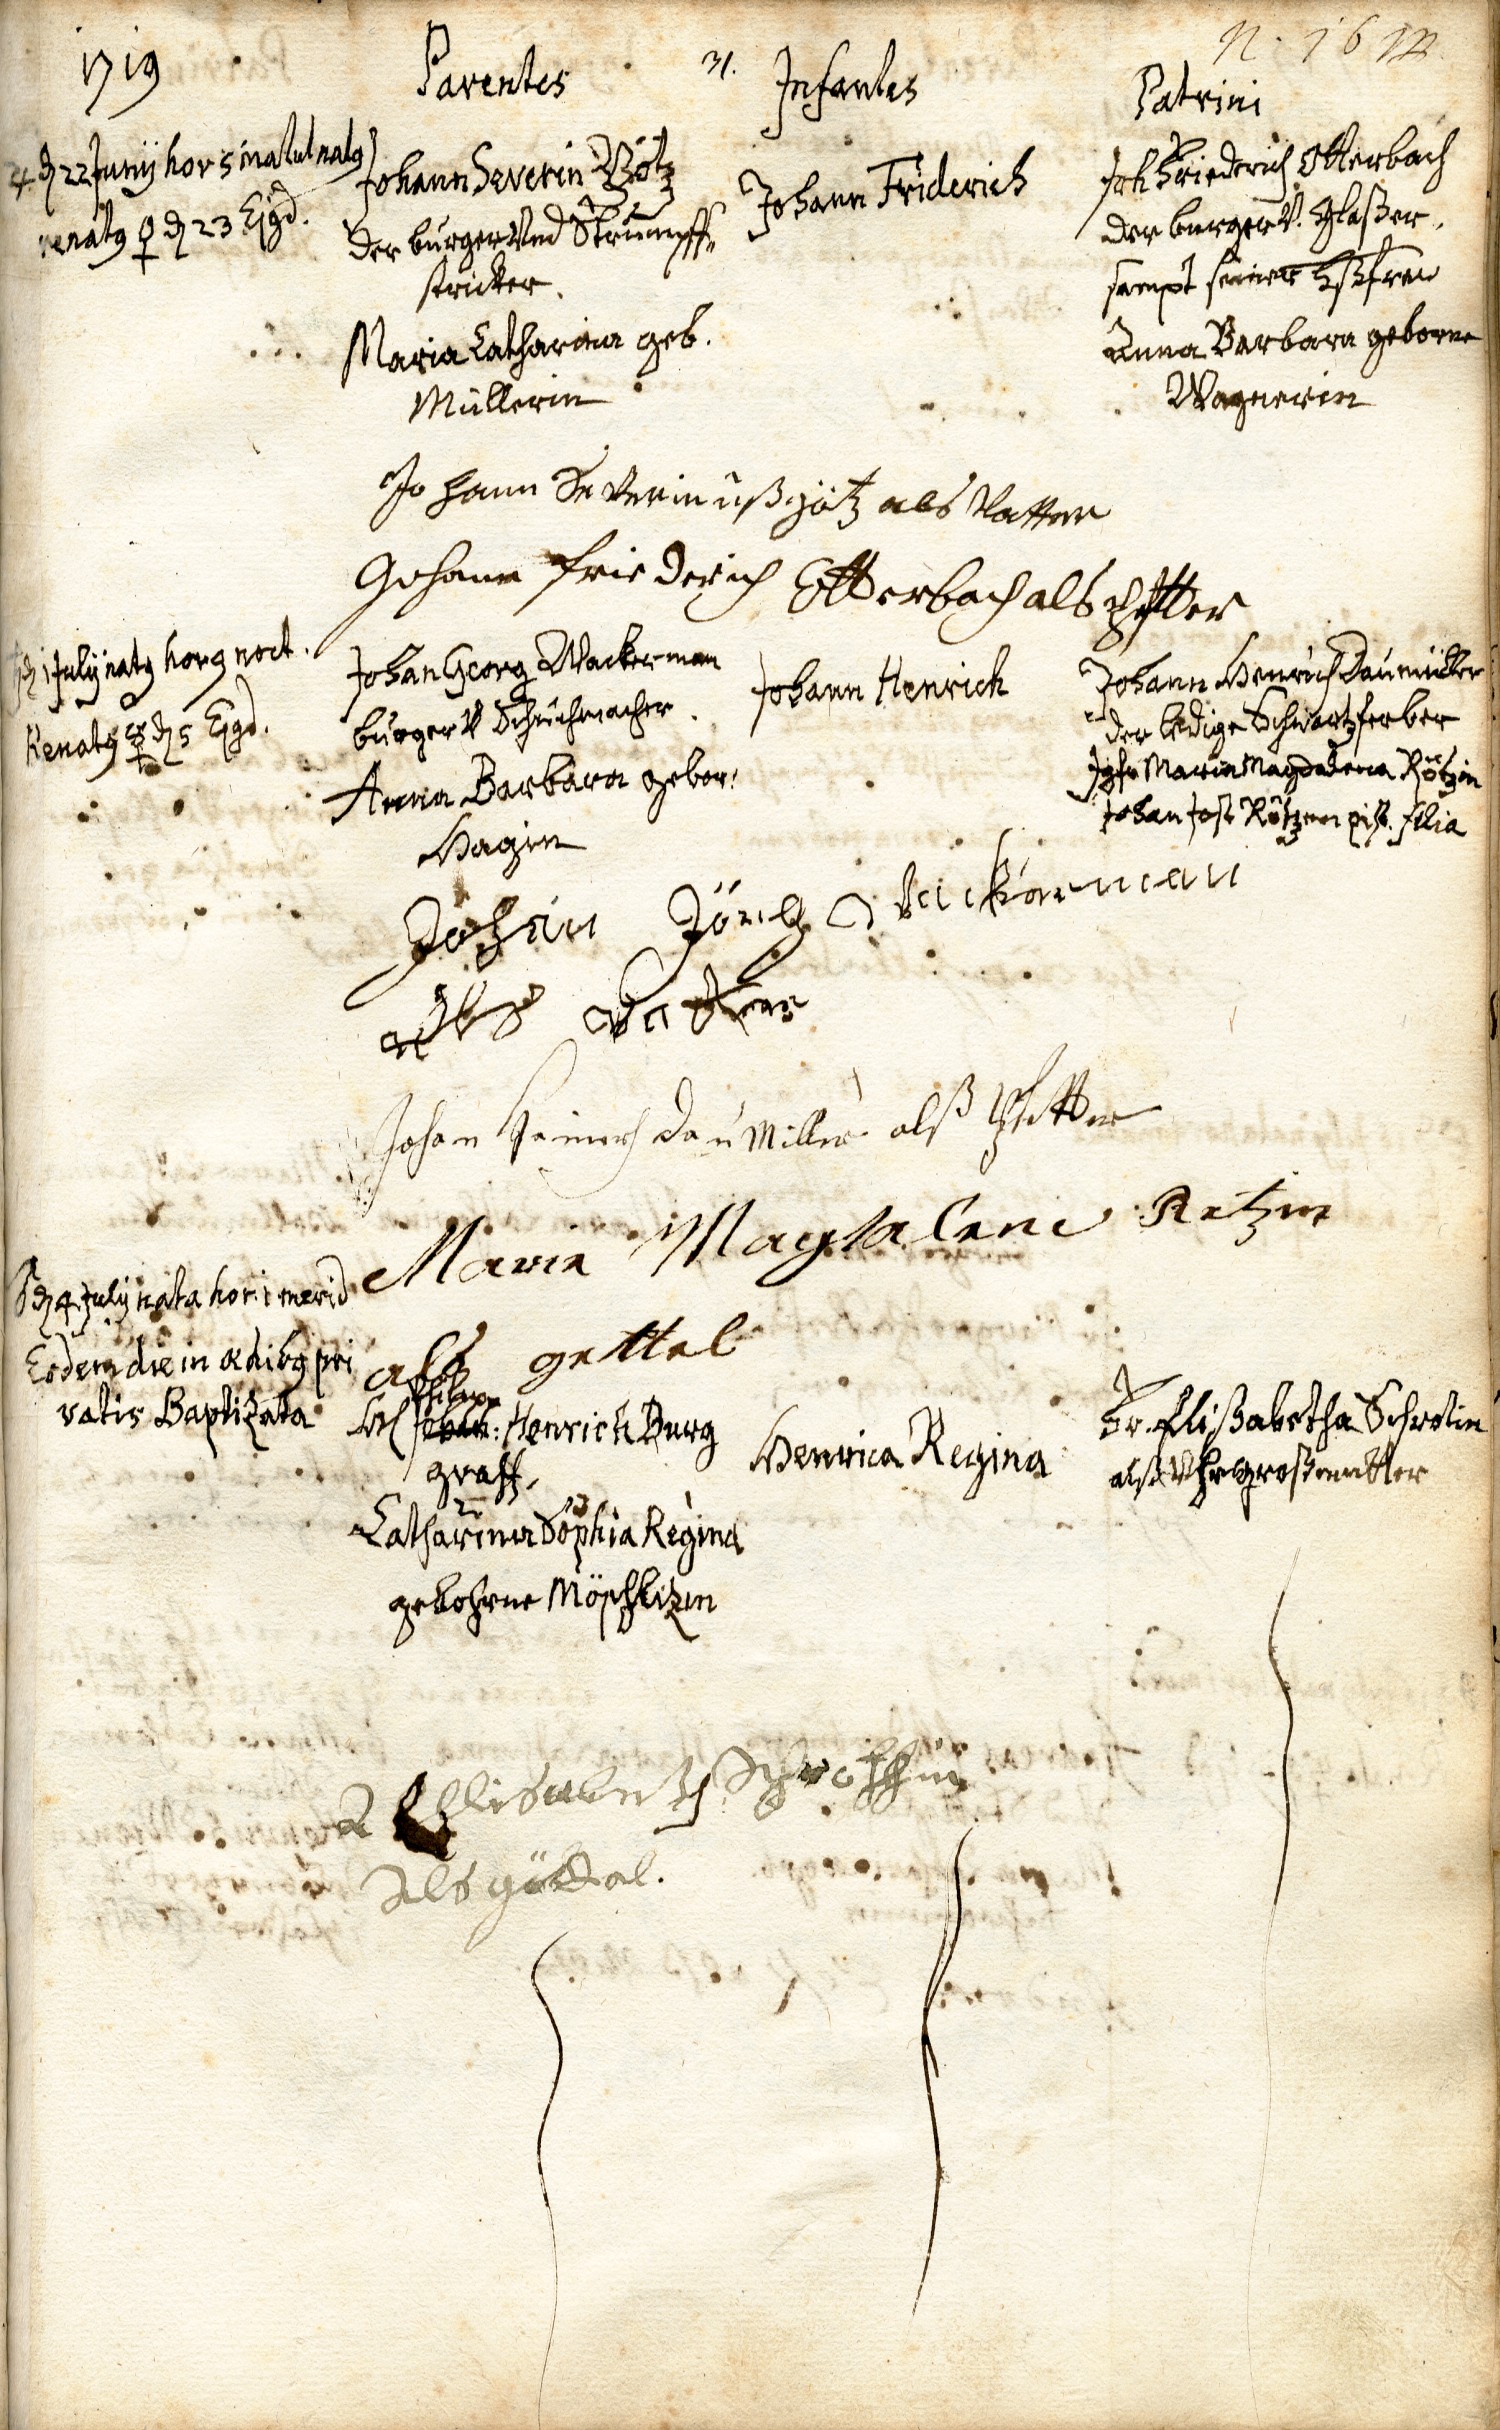 1719
Parentes
31.
Infantes
Patrini
N. 16
♃ d 22 Junij hor 5 matut natq
renatq ♀ d 23 Ejqd.
Johann Severin Götz
der burger Und Strumpff„
stricker.
Maria Catharina geb.
Müllerin
Johann Friderich
Joh Friederich Otterbach
der burger V. Glaßer,
sampt seiner Hßfrau
Anna Barbara geborne
Wagnerin
Johann Severinuß götz als Vatter
Johann friederich Otterbach als Pfetter
d 1 July natq hor 9 noct.
Renatq d 5 Ejqd.
Johan Georg Wackerman
burger V Schuchmacher
Anna Barbara gebor:
Hagin
Johann Henrich
Johann Henrich Daumüller
der ledige Schwartzferber
Jgfr Maria Magdalena Rötzin
Johan Jost Rötzen pist. filia
Johan Jörch Wackerman
als Vatter
Johan Heinrich dau Miller alß Pfetter
Maria Magdalena Retzin
als gettel
d 4 July nata hor 1 merid
Eodem die in ædibq pri
vatis Baptizata
Philipp
H Johan: Henrich Burg
graff,
Catharina Sophia Regina
gebohrne
Henrica Regina
Fr. Elißabetha Schrotin
alß Uhrgroßmutter
Elisabeth
als göttel.